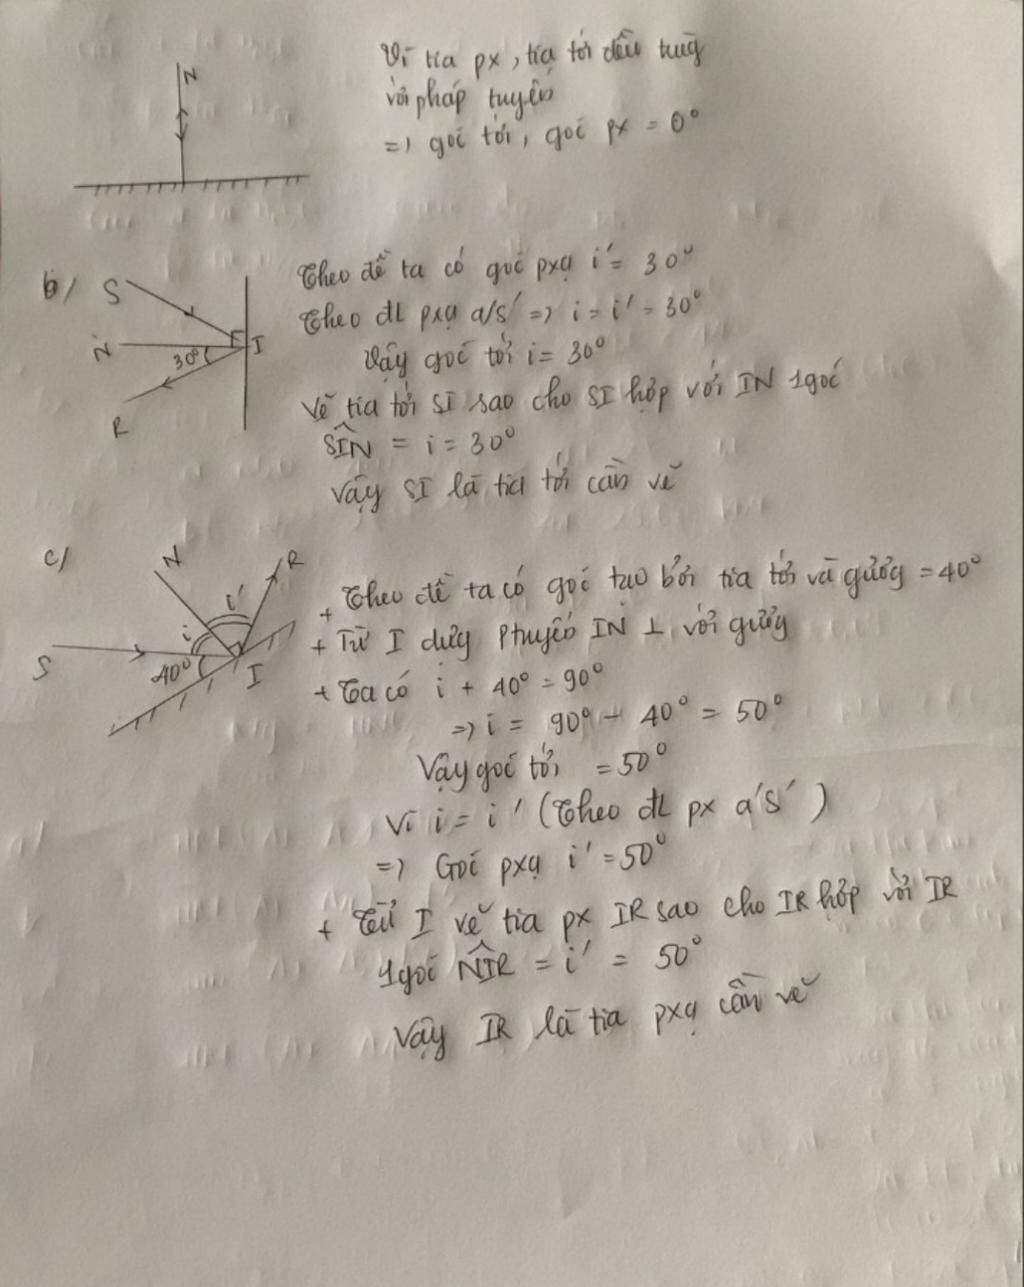 N
Vì tia px, tia tới đều trùg
với pháp tuyến
=> góc tới, góc px = 0°
b/ S
N
30°
I
R
Theo đề ta có góc pxạ i' = 30°
Theo đL pxạ a/s' => i = i' = 30°
Vậy góc tới i = 30°
Vẽ tia tới SI sao cho SI hợp với IN 1 góc
SIN = i = 30°
Vậy SI là tia tới cần vẽ
c/
N
R
i'
i
S
40°
I
+ Theo đề ta có góc tạo bởi tia tới và gươg = 40°
+ Từ I dựg Ptuyến IN ⊥ với gươg
+ Ta có i + 40° = 90°
=> i = 90° - 40° = 50°
Vậy góc tới = 50°
Vì i = i' (Theo đL px a's')
=> Góc pxạ i' = 50°
+ Từ I vẽ tia px IR sao cho IR hợp với IR
1 góc NIR = i' = 50°
Vậy IR là tia pxạ cần vẽ